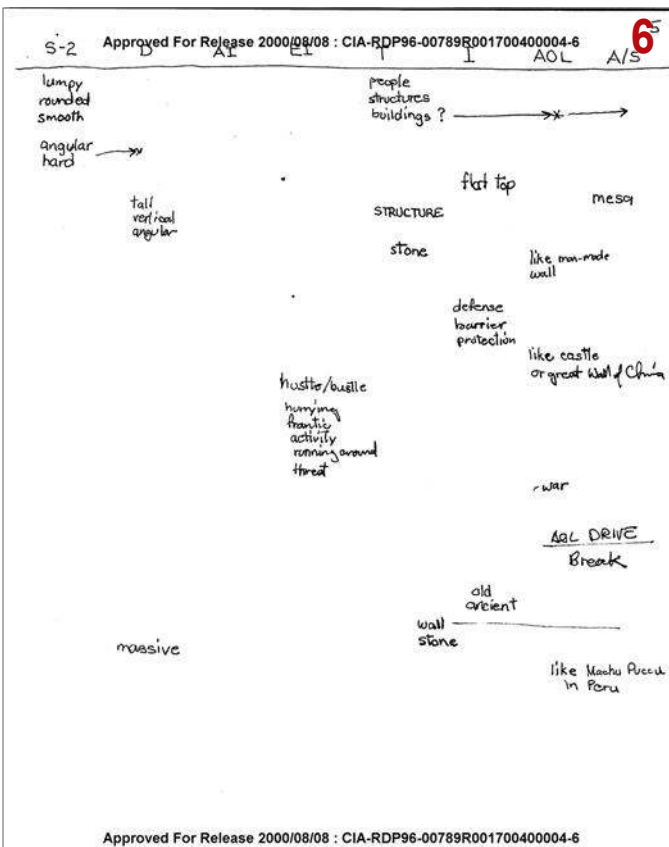 5
6
Approved For Release 2000/08/08 : CIA-RDP96-00789R001700400004-6
S-2 D AI EI T I AOL A/S
lumpy
rounded
smooth
people
structures
buildings ?
angular
hard
flat top
mesa
tall
vertical
angular
STRUCTURE
stone
like man-made
wall
defense
barrier
protection
like castle
or great Wall of China
hustle/bustle
hurrying
frantic
activity
running around
threat
-war
AOL DRIVE
Break
old
ancient
wall
stone
massive
like Machu Puccu
in Peru
Approved For Release 2000/08/08 : CIA-RDP96-00789R001700400004-6